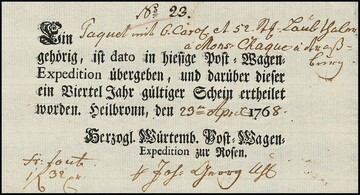 No 23.
Ein Paquet mit 6. Carol. et 52. St. Laubthaler
a Mons. Chaque a Straß-
burg
gehörig, ist dato in hiesige Post-Wagen-
Expedition übergeben, und darüber dieser
ein Viertel Jahr gültiger Schein ertheilet
worden. Heilbronn, den 23ten April 1768.
Herzogl. Würtemb. Post-Wagen-
Expedition zur Rosen.
Joh. Georg